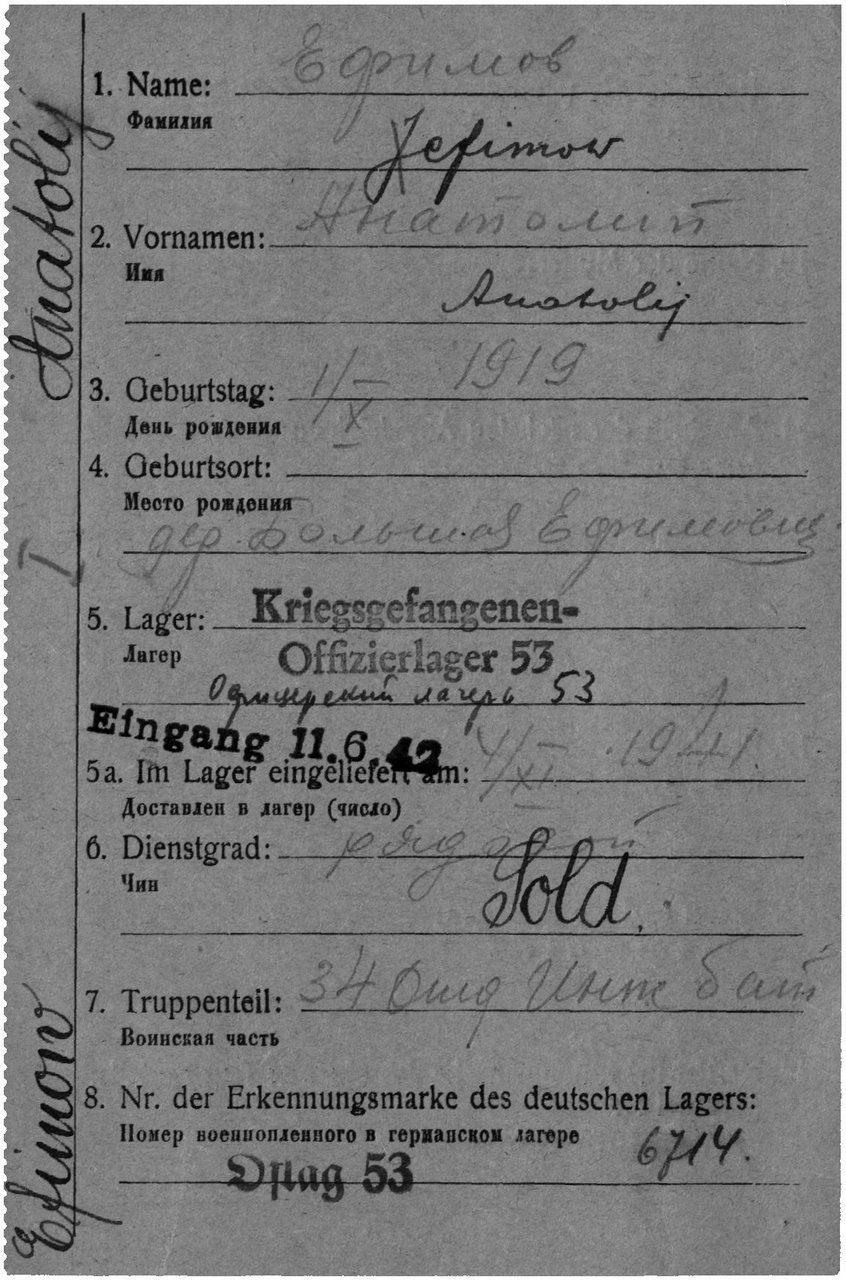 Ефимов
1. Name:
Фамилия
Jefimow
Анатолий
2. Vornamen:
Имя
Anatolij
3. Geburtstag: 1/X 1919
День рождения
4. Geburtsort:
Место рождения
дер. Большая
5. Lager: Kriegsgefangenen-
Лагер Offizierlager 53
Офицерский лагерь 53
Eingang 11.6.42
5a. Im Lager eingeliefert am: 4/XI 1941.
Доставлен в лагер (число)
6. Dienstgrad: рядовой
Чин
Sold.
7. Truppenteil: 34 Инж бат
Воинская часть
8. Nr. der Erkennungsmarke des deutschen Lagers:
Номер военнопленного в германском лагере
6714.
Oflag 53
Efimow Anatolij
I